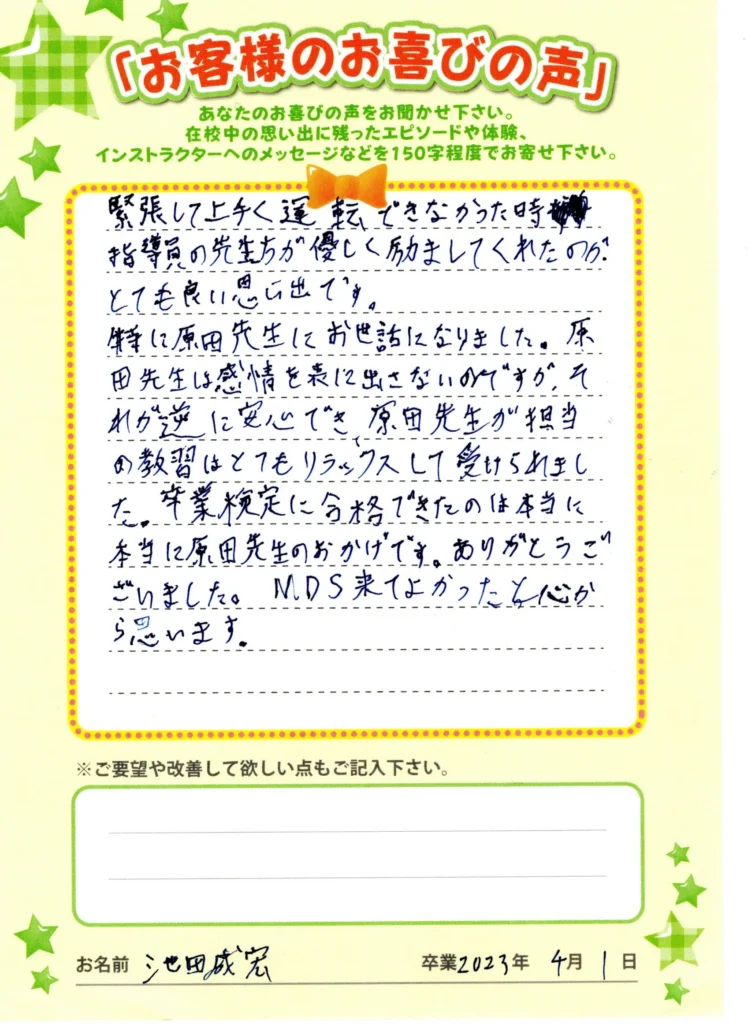 「お客様のお喜びの声」
あなたのお喜びの声をお聞かせ下さい。
在校中の思い出に残ったエピソードや体験、
インストラクターへのメッセージなどを150字程度でお寄せ下さい。
緊張して上手く運転できなかった時
指導員の先生方が優しく励ましてくれたのが
とても良い思い出です。
特に原田先生にお世話になりました。原
田先生は感情を表に出さないのですが、そ
れが逆に安心でき、原田先生が担当
の教習はとてもリラックスして受けられまし
た。卒業検定に合格できたのは本当に
本当に原田先生のおかげです。ありがとうご
ございました。MDS来てよかったと心か
ら思います。
※ご要望や改善して欲しい点もご記入下さい。
お名前 池田成宏 卒業2023年 4月 1日